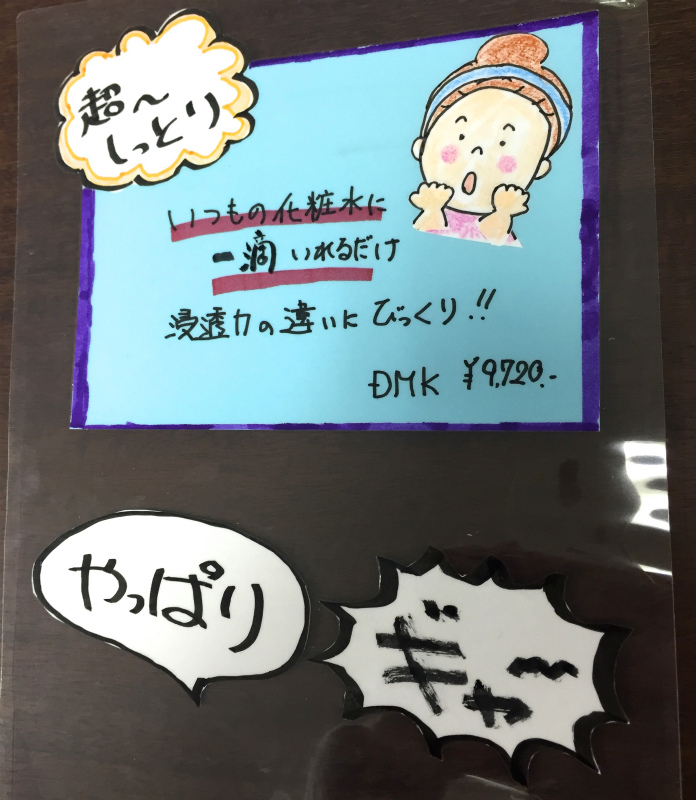 超〜
しっとり
いつもの化粧水に
一滴 いれるだけ
浸透力の違いに びっくり!!
DMK ¥9,720.-
やっぱり
ギャ〜